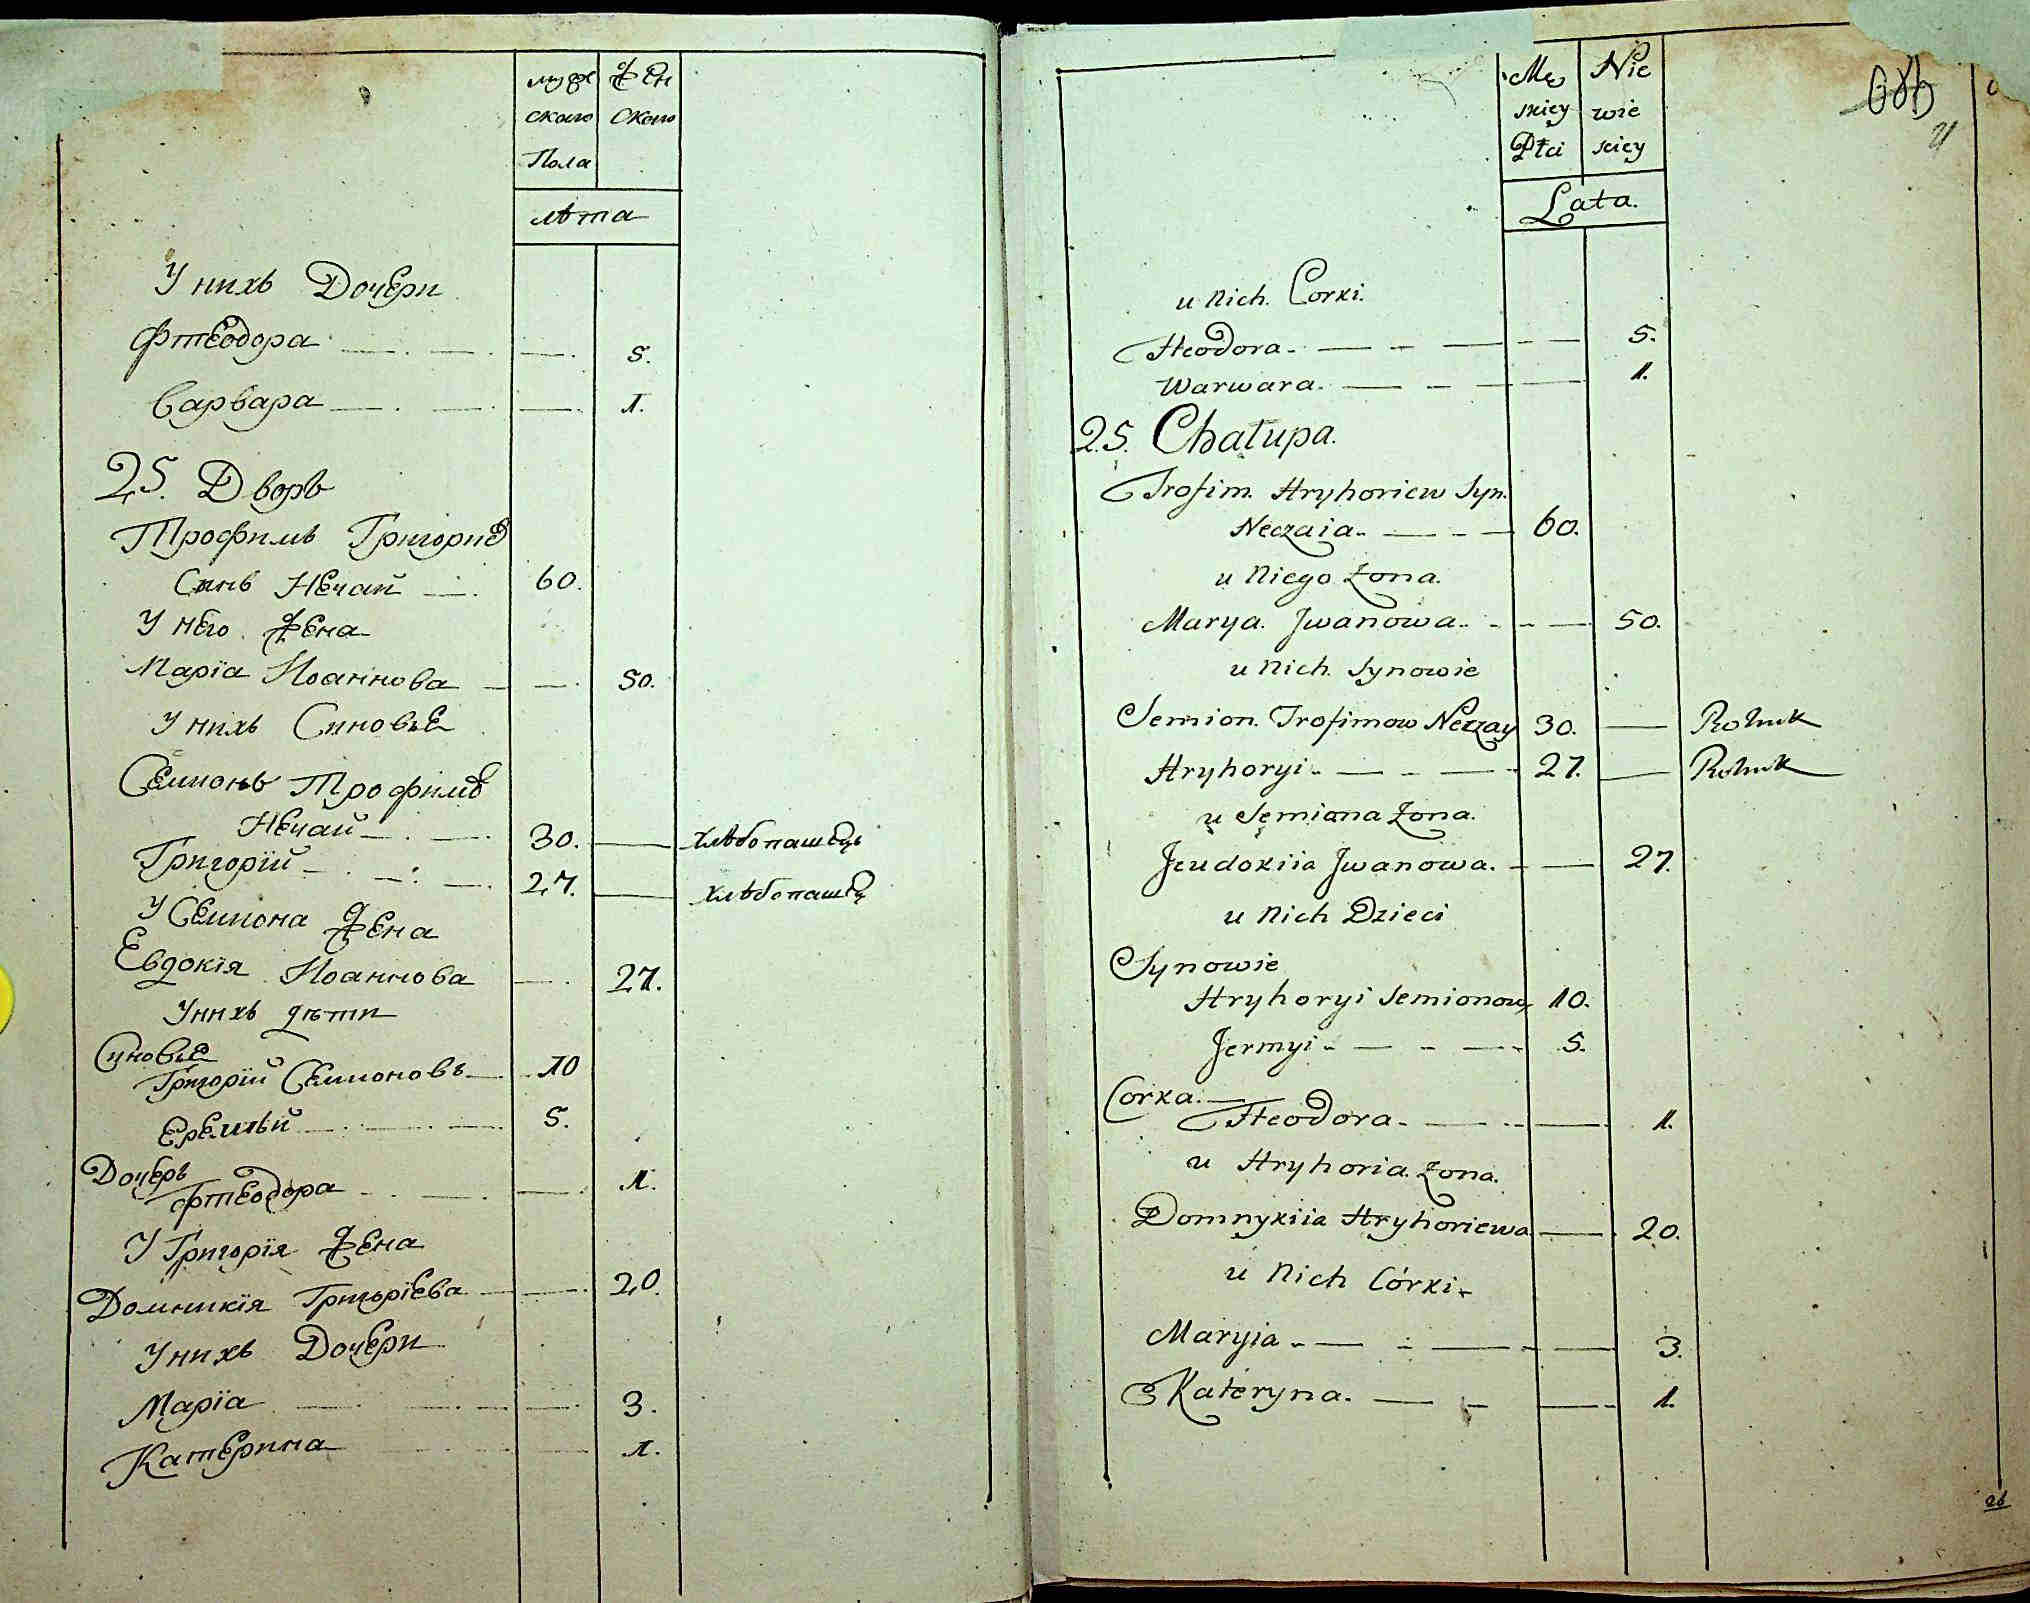 муже жен
ского ского
Пола
лѣта
У нихъ Дочери
Фтеодора 5.
Варвара 1.
25. Дворъ
Трофимъ Григориев
Синъ Нечай 60.
У него жена
Марїа Иоаннова 50.
У нихъ Синовье
Семионъ Трофимов
Нечай 30. хлѣбопашець
Григорїй 27. хлѣбопашец
У Семиона жена
Евдокїя Иоаннова 27.
У нихъ дѣти
Синовье
Григорїй Семионовъ 10
Еремѣй 5.
Дочеръ
Фтеодора 1.
У Григорїя жена
Домникїя Григорїева 20.
У нихъ Дочери
Марїа 3.
Катерина 1.
Mę Nie
skiey wie
Płci sciey
Lata.
u Nich. Corki.
Fteodora 5.
Warwara. 1.
25. Chałupa.
Trofim. Hryhoriew Syn.
Neczaia 60.
u Niego Zona.
Marya. Jwanowa 50.
u Nich Synowie
Semion. Trofimow Neczay 30. Rolnik
Hryhoryi 27. Rolnik
u Semiona Zona.
Jeudokiia Jwanowa. 27.
u Nich Dzieci
Synowie
Hryhoryi Semionow 10.
Jermyi 5.
Corka.
Fteodora 1.
u Hryhoria Zona.
Domnykiia Hryhoriewa 20.
u Nich Córki
Maryia 3.
Kateryna. 1.
26